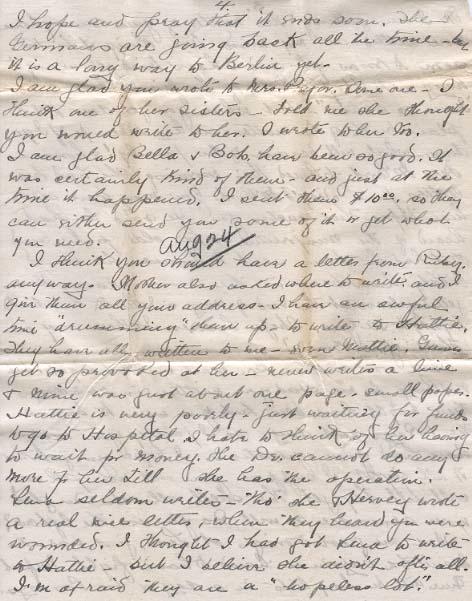 4.
I hope and pray that it ends soon. The
Germans are going back all the time - but
it is a long way to Berlin yet.
I am glad you wrote to Mrs. Pryor. Some one - I
think one of her sisters - told me she thought
you would write to her. I wrote to her too.
I am glad Bella & Bob. have been so good. It
was certainly kind of them - and just at the
time it happened. I sent them $10.00, so they
can either send you some of it or get what
you need.
Aug 24
I think you should have a letter from Ruby.
anyway. Mother also asked where to write and I
give them all your address - I have an awful
time "drumming" them up - to write to Hattie.
They have all written to me - even Mattie.
get so provoked at her - never writes a line
& mine was just about one page. small paper.
Hattie is very poorly - just waiting for funds
to go to Hospital. I hate to think of her having
to wait for money. The Dr. cannot do any
more for her till she has the operation.
Lena seldom writes - tho' she & Hervey wrote
a real nice letter, when they heard you were
wounded. I thought I had got Lena to write
to Hattie - but I believe she didn't after all.
I'm afraid they are a "hopeless lot."